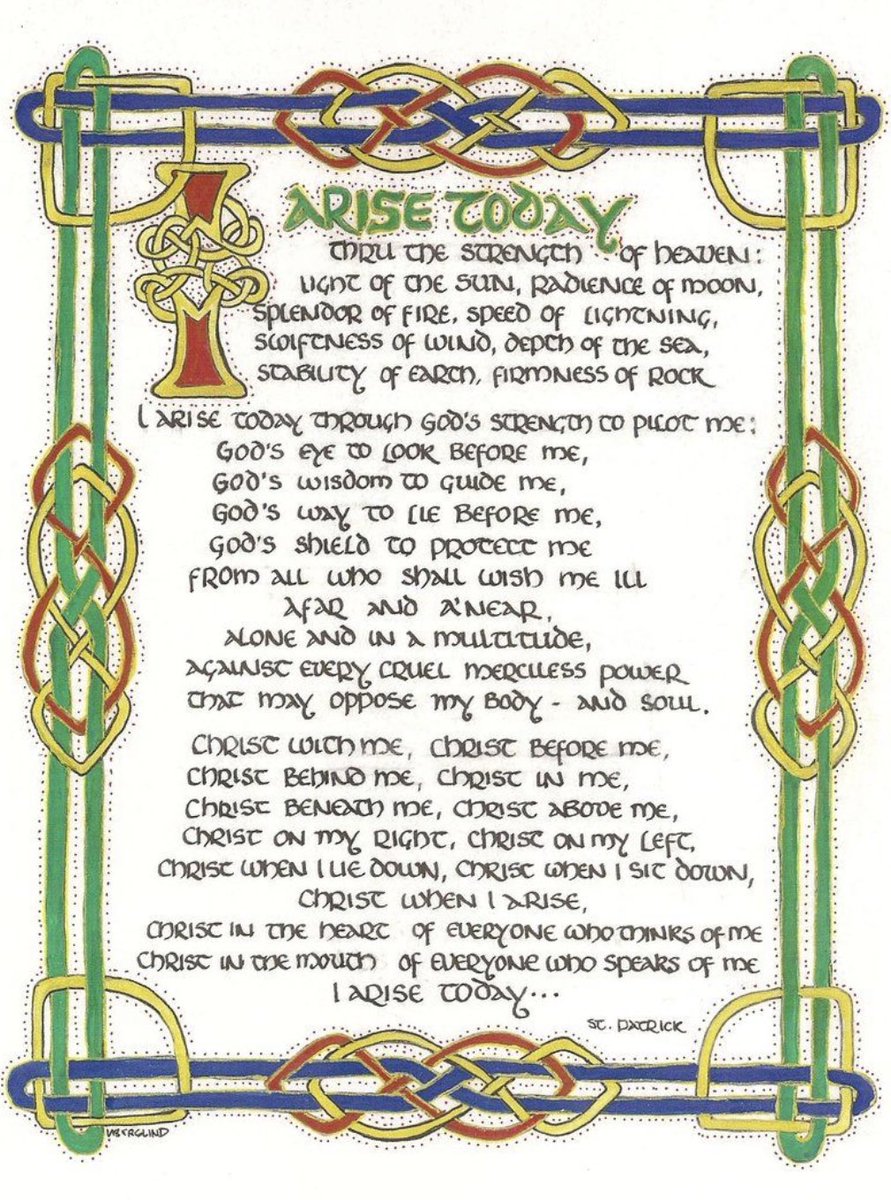 I ARISE TODAY
THRU THE STRENGTH OF HEAVEN:
LIGHT OF THE SUN, RADIENCE OF MOON,
SPLENDOR OF FIRE, SPEED OF LIGHTNING,
SWIFTNESS OF WIND, DEPTH OF THE SEA,
STABILITY OF EARTH, FIRMNESS OF ROCK
I ARISE TODAY THROUGH GOD'S STRENGTH TO PILOT ME:
GOD'S EYE TO LOOK BEFORE ME,
GOD'S WISDOM TO GUIDE ME,
GOD'S WAY TO LIE BEFORE ME,
GOD'S SHIELD TO PROTECT ME
FROM ALL WHO SHALL WISH ME ILL
AFAR AND A'NEAR,
ALONE AND IN A MULTITUDE,
AGAINST EVERY CRUEL MERCILESS POWER
THAT MAY OPPOSE MY BODY - AND SOUL.
CHRIST WITH ME, CHRIST BEFORE ME,
CHRIST BEHIND ME, CHRIST IN ME,
CHRIST BENEATH ME, CHRIST ABOVE ME,
CHRIST ON MY RIGHT, CHRIST ON MY LEFT,
CHRIST WHEN I LIE DOWN, CHRIST WHEN I SIT DOWN,
CHRIST WHEN I ARISE,
CHRIST IN THE HEART OF EVERYONE WHO THINKS OF ME
CHRIST IN THE MOUTH OF EVERYONE WHO SPEAKS OF ME
I ARISE TODAY...
ST. PATRICK